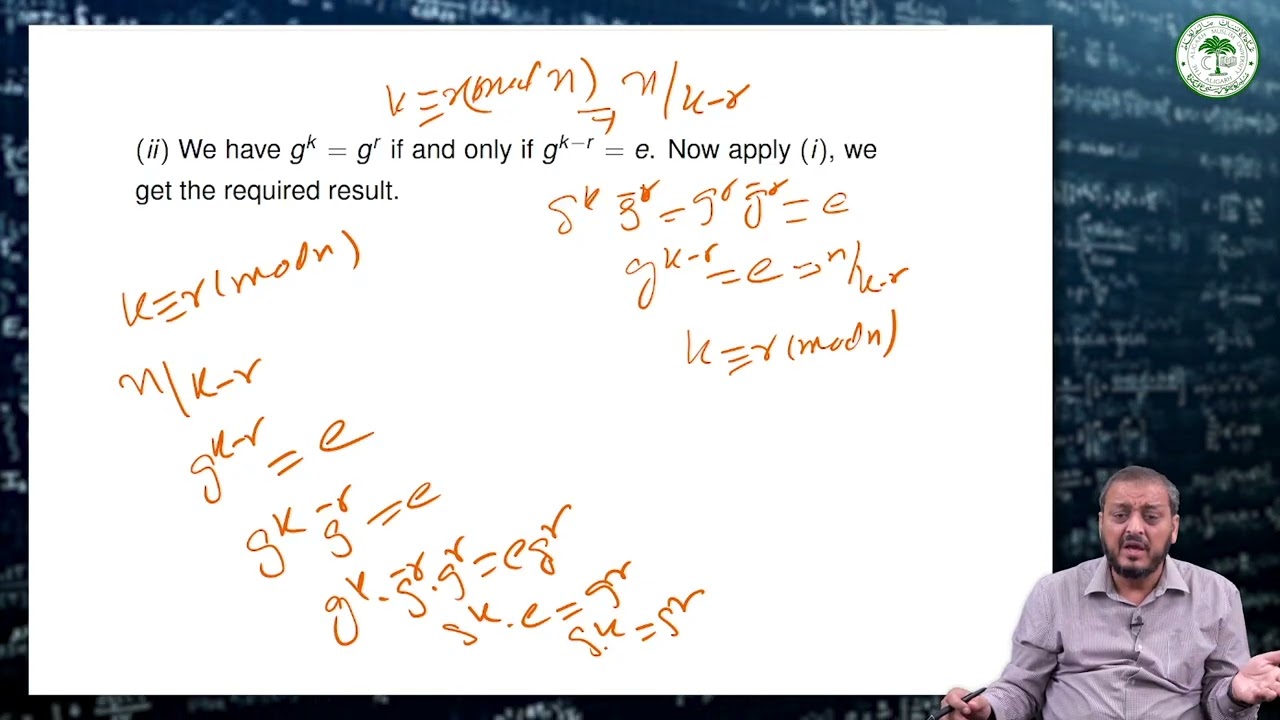 k≡r(mod n) ⇒ n/k-r
(ii) We have gᵏ = gʳ if and only if gᵏ⁻ʳ = e. Now apply (i), we
get the required result.
gᵏ g⁻ʳ = gʳ g⁻ʳ = e
gᵏ⁻ʳ = e ⇒ n/k-r
k≡r(mod n)
k≡r(mod n)
n/k-r
gᵏ⁻ʳ = e
gᵏ g⁻ʳ = e
gᵏ. g⁻ʳ. gʳ = e gʳ
gᵏ. e = gʳ
gᵏ = gʳ